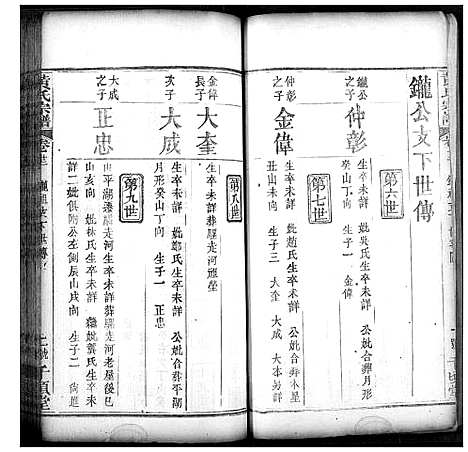 鑨公支下世傳
第六世
鑨公
之子
仲彰
生卒未詳 妣吳氏生卒未詳 公妣合葬月形
癸山丁向 生子一 金偉
第七世
仲彰
之子
金偉
生卒未詳 妣趙氏生卒未詳 公妣合葬木星
丑山未向 生子三 大奎 大成 大本幼詳
第八世
金偉
長子
大奎
生卒未詳葬驛走河雅塋
次子
大成
生卒未詳 妣鄭氏生卒未詳 公妣合葬平湖
月形癸山丁向 生子一 正忠
第九世
大成
之子
正忠
生卒未詳葬驛走河老屋後巳
山亥向 妣林氏生卒未詳 繼妣龔氏生卒未
詳二妣俱附公左側辰山戌向 生子二
黃氏宗譜